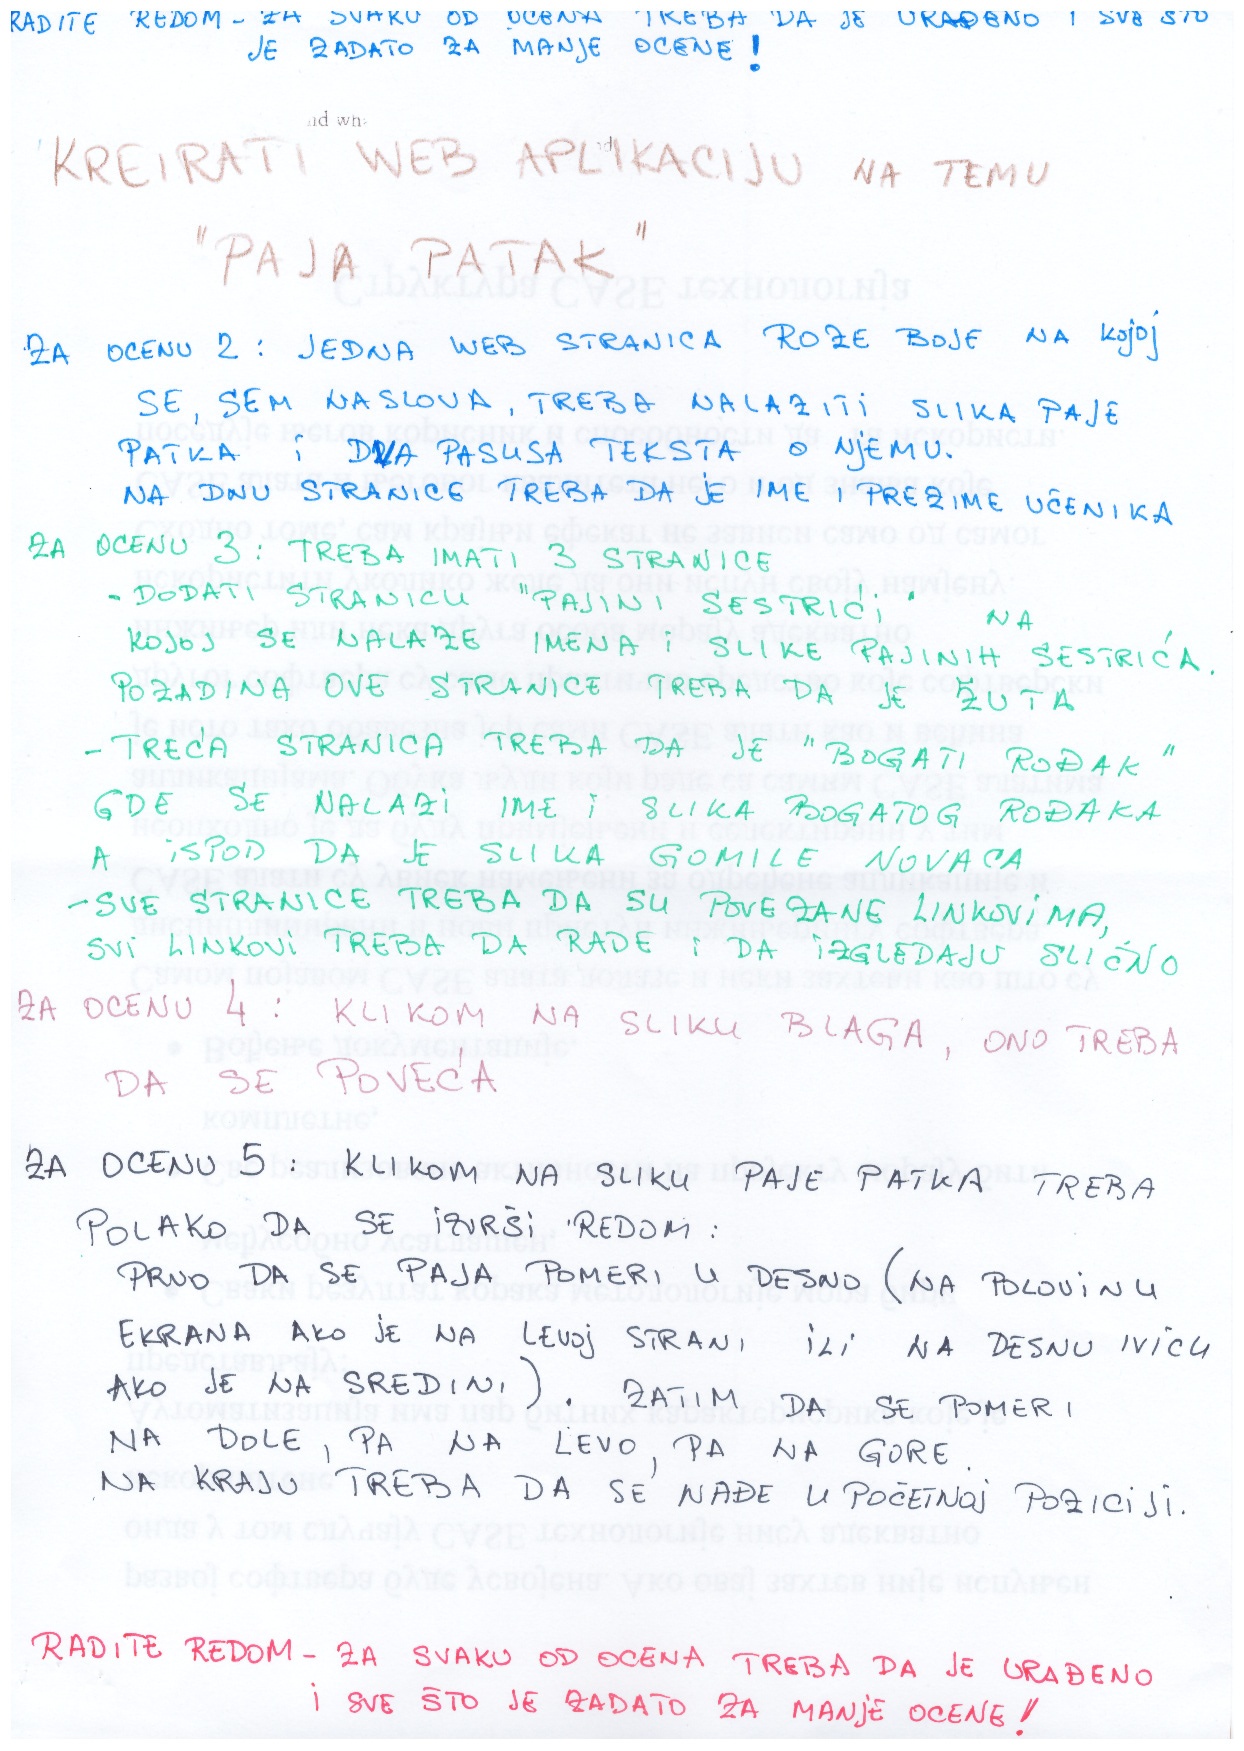 RADITE REDOM - ZA SVAKU OD OCENA TREBA DA JE URAĐENO I SVE ŠTO
JE ZADATO ZA MANJE OCENE!
KREIRATI WEB APLIKACIJU NA TEMU
"PAJA PATAK"
ZA OCENU 2: JEDNA WEB STRANICA ROZE BOJE NA KOJOJ
SE, SEM NASLOVA, TREBA NALAZITI SLIKA PAJE
PATKA I DVA PASUSA TEKSTA O NJEMU.
NA DNU STRANICE TREBA DA JE IME I PREZIME UČENIKA
ZA OCENU 3: TREBA IMATI 3 STRANICE
- DODATI STRANICU "PAJINI SESTRIĆI" NA
KOJOJ SE NALAZE IMENA I SLIKE PAJINIH SESTRIĆA.
POZADINA OVE STRANICE TREBA DA JE ŽUTA
- TREĆA STRANICA TREBA DA JE "BOGATI ROĐAK"
GDE SE NALAZI IME I SLIKA BOGATOG ROĐAKA
A ISPOD DA JE SLIKA GOMILE NOVACA
- SVE STRANICE TREBA DA SU POVEZANE LINKOVIMA,
SVI LINKOVI TREBA DA RADE I DA IZGLEDAJU SLIČNO
ZA OCENU 4: KLIKOM NA SLIKU BLAGA, ONO TREBA
DA SE POVEĆA
ZA OCENU 5: KLIKOM NA SLIKU PAJE PATKA TREBA
POLAKO DA SE IZVRŠI REDOM:
PRVO DA SE PAJA POMERI U DESNO (NA POLOVINU
EKRANA AKO JE NA LEVOJ STRANI ILI NA DESNU IVICU
AKO JE NA SREDINI). ZATIM DA SE POMERI
NA DOLE, PA NA LEVO, PA NA GORE.
NA KRAJU TREBA DA SE NAĐE U POČETNOJ POZICIJI.
RADITE REDOM - ZA SVAKU OD OCENA TREBA DA JE URAĐENO
I SVE ŠTO JE ZADATO ZA MANJE OCENE!